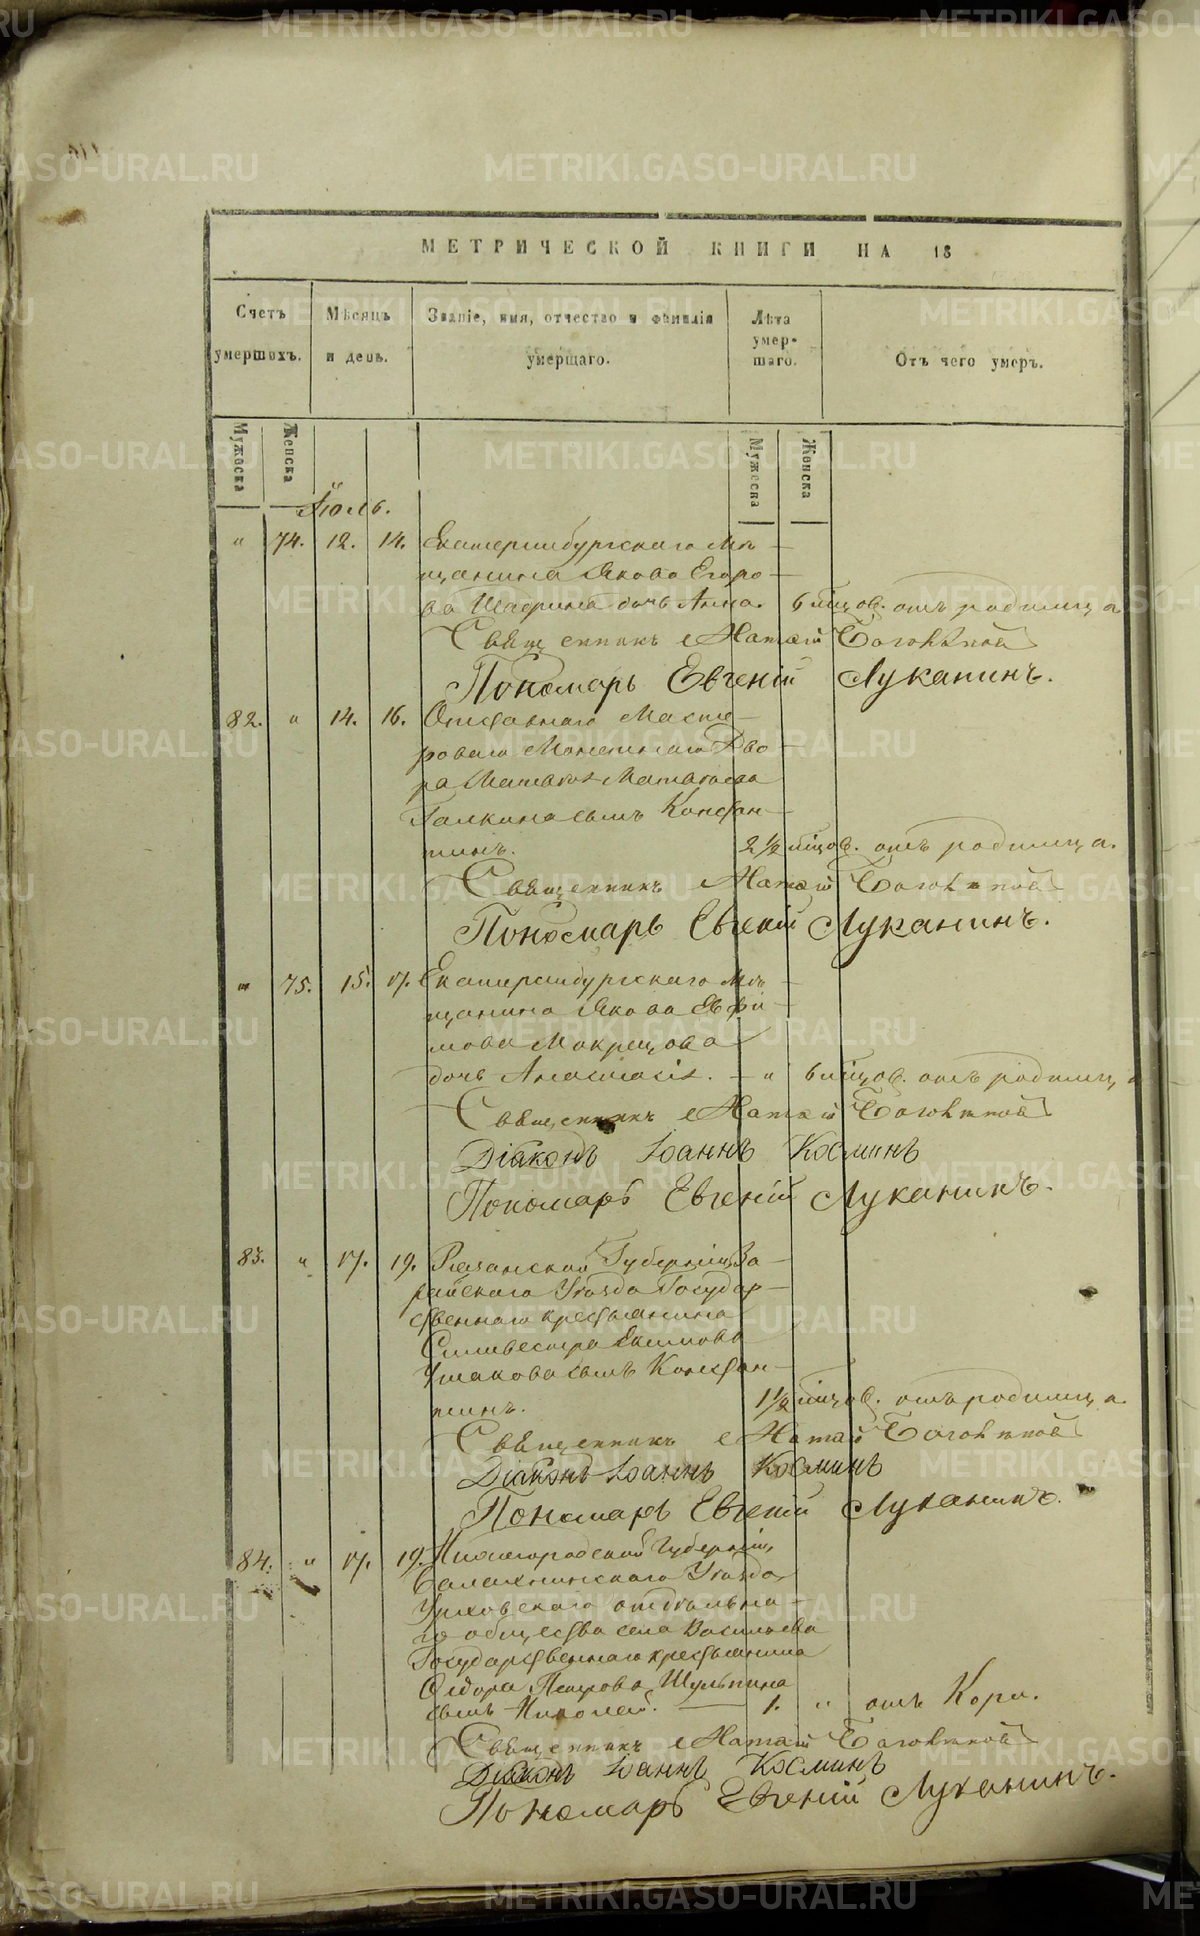 МЕТРИЧЕСКОЙ КНИГИ НА 18
Счетъ умершихъ.
Мѣсяцъ и день.
Званіе, имя, отчество и фамилія умершаго.
Лѣта умершаго.
Отъ чего умеръ.
Мужеска
Женска
Мужеска
Женска
Іюль.
" 74. 12. 14. Екатеринбургскаго Мѣ-
щанина Якова Егоро-
ва Шадрина дочь Анна. 6 мѣсяцов. отъ родимца
Священникъ Боголѣпов
Пономарь Евгеній Луканинъ.
82. " 14. 16. Отставнаго Масте-
роваго Монетнаго Дво-
ра Матвѣя Матвѣева
Галкина сынъ Констан-
тинъ. 2 ½ мѣсяцов. отъ родимца.
Священникъ Боголѣпов
Пономарь Евгеній Луканинъ.
" 75. 15. 17. Екатеринбургскаго Мѣ-
щанина Якова Ефи-
мова Мокрецова
дочь Анастасія. — " 6 мѣсяцов. отъ родимца
Священникъ Боголѣпов
Діаконъ Іоаннъ Косминъ
Пономарь Евгеній Луканинъ.
83. " 17. 19. Рязанской Губерніи За-
райскаго Уѣзда Государ-
ственнаго крестьянина
Сильвестра Екимова
Ушакова сынъ Констан-
тинъ. 1 ½ мѣсяцов. отъ родимца
Священникъ Боголѣпов
Діаконъ Іоаннъ Косминъ
Пономарь Евгеній Луканинъ.
84. " 17. 19. Нижегородской Губерніи,
Балахнинскаго Уѣзда,
го общества села Васильева
Государственнаго крестьянина
Петрова Шульпина
сынъ Николай. — 1. " отъ Кори.
Священникъ Боголѣпов
Діаконъ Іоаннъ Косминъ
Пономарь Евгеній Луканинъ.
METRIKI.GASO-URAL.RU